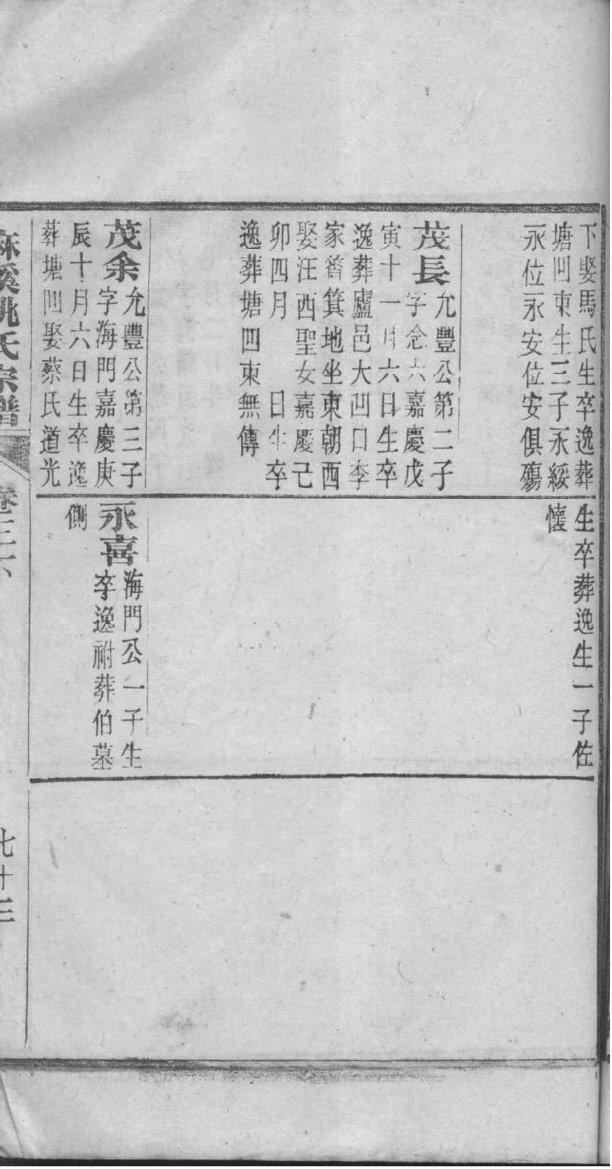 下娶馬氏生卒逸葬
塘凹東生三子永綏
永位永安位安俱殤
茂長允豐公第二子
字念六嘉慶戊
寅十一月六日生卒
逸葬廬邑大凹口李
家筲箕地坐東朝西
娶汪西聖女嘉慶己
卯四月 日生卒
逸葬塘凹東無傳
茂余允豐公第三子
字海門嘉慶庚
辰十月六日生卒逸
葬塘凹娶蔡氏道光
生卒葬逸生一子佐
懷
永喜海門公一子生
卒逸祔葬伯墓
側
麻溪姚氏宗譜
七十三